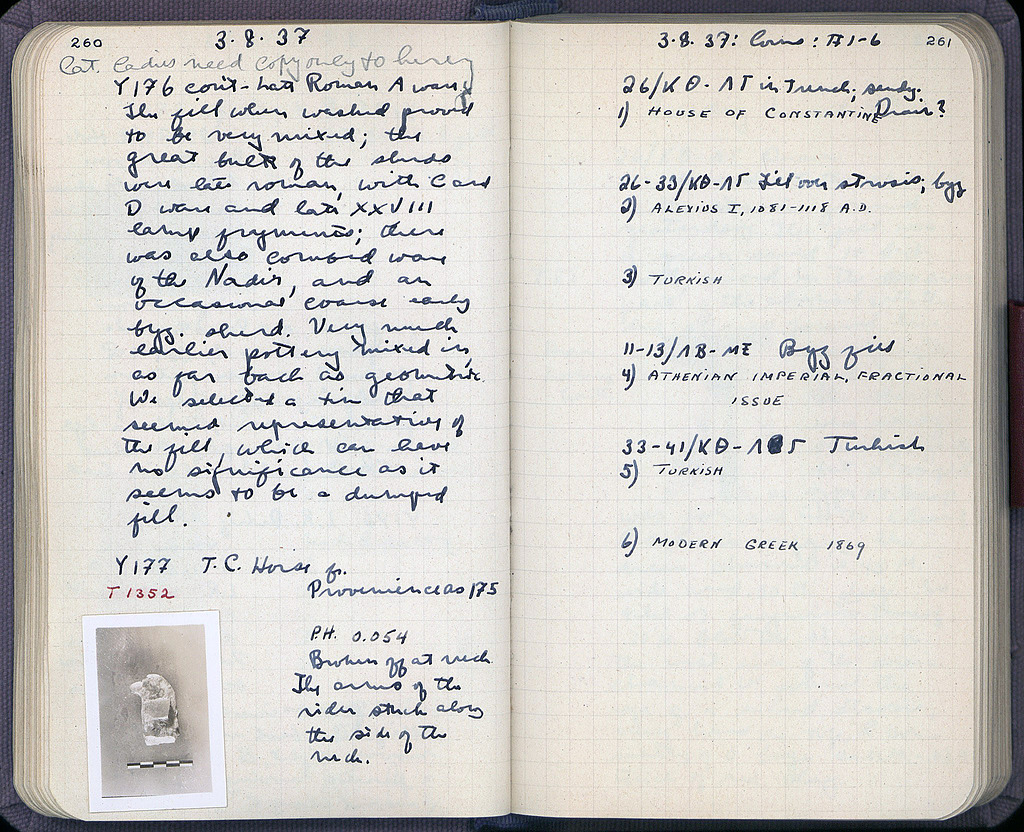 260
3·8·37
Cat. Ladies need copy only to here
Y176 con't - Late Roman A ware
The fill when washed proved
to be very mixed; the
great bulk of the sherds
were late roman, with C and
D ware and late XXVIII
lamp fragments; there
was also combed ware
of the Nadir, and an
occasional coarse early
byz. sherd. Very much
earlier pottery mixed in,
as far back as geometric.
We selected a tin that
seemed representative of
the fill, which can have
no significance as it
seems to be a dumped
fill.
Y177 T.C. Horse fr.
T 1352
Provenience as 175
P.H. 0.054
Broken off at neck
The arms of the
rider stuck along
the side of the
neck.
3·8·37: Coins: #1-6
261
26/ΚΘ-ΛΓ in trench; sandy.
Drain?
1) HOUSE OF CONSTANTINE
26-33/ΚΘ-ΛΓ Fill over strosis; byz
2) ALEXIOS I, 1081-1118 A.D.
3) TURKISH
11-13/ΛΒ-ΜΕ Byz fill
4) ATHENIAN IMPERIAL, FRACTIONAL
ISSUE
33-41/ΚΘ-ΛΓ Turkish
5) TURKISH
6) MODERN GREEK 1869